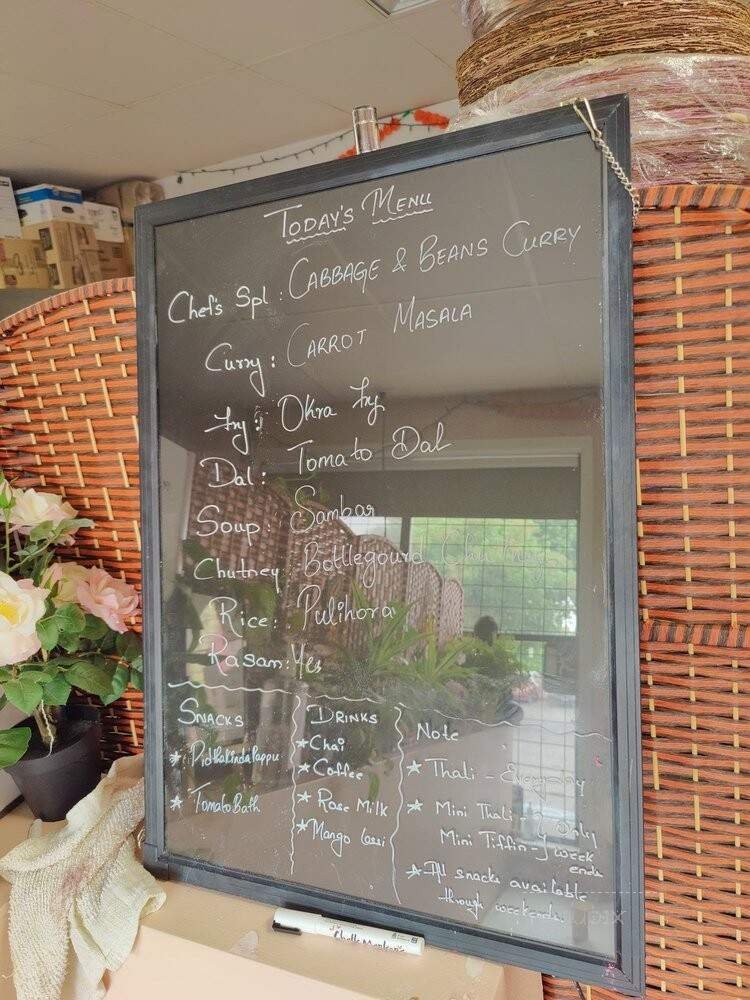 TODAY'S MENU
Chef's Spl : CABBAGE & BEANS CURRY
Curry : CARROT MASALA
Fry : Okra Fry
Dal : Tomato Dal
Soup : Sambar
Chutney : Bottlegourd Chutney
Rice : Pulihora
Rasam : Yes
SNACKS
* PidhakindaPappu
* Tomato Bath
DRINKS
* Chai
* Coffee
* Rose Milk
* Mango lassi
Note
* Thali - Everyday
* Mini Thali - } Only
Mini Tiffin - } week
ends
* All snacks available
through weekends
Chalk Markers